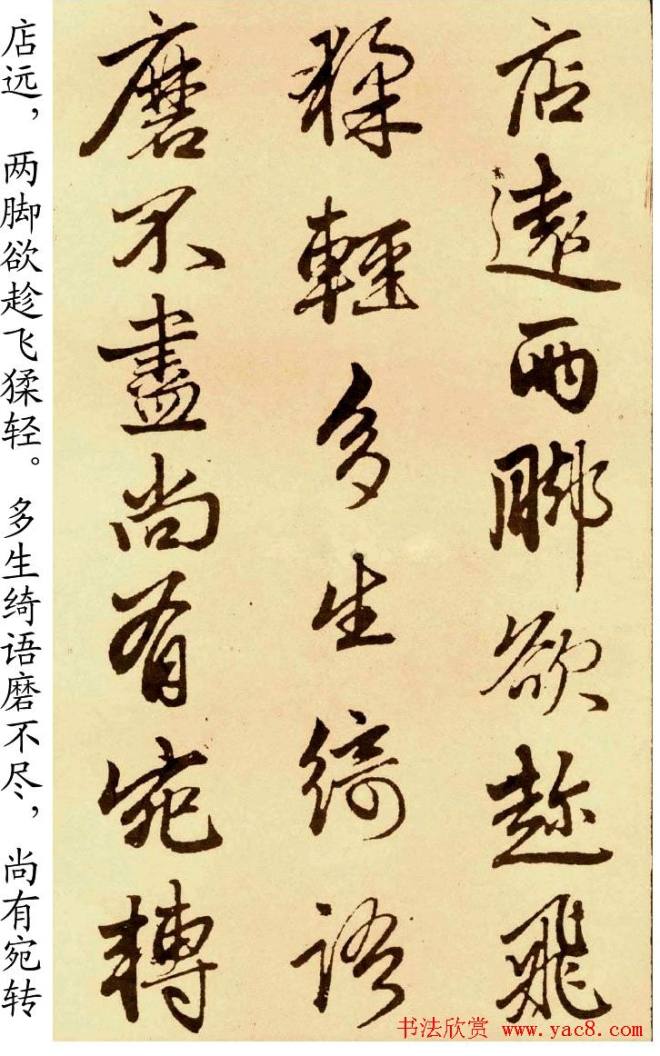 店遠兩脚欲趂飛
猱輕多生綺語
磨不盡尚有宛轉
店远，两脚欲趁飞猱轻。多生绮语磨不尽，尚有宛转
书法欣赏 www.yac8.com